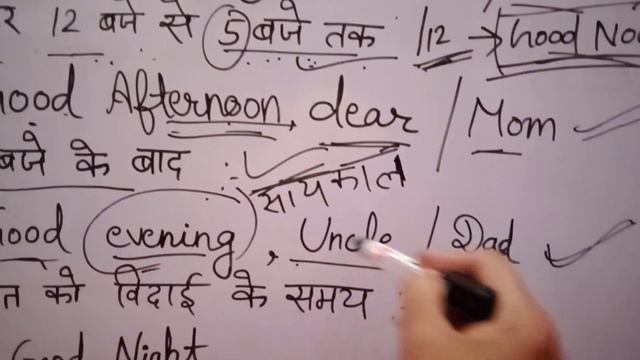 र 12 बजे से 5 बजे तक /12 → Good Noo
Good Afternoon, dear / Mom
बजे के बाद :- सायंकाल
Good evening, Uncle / Dad
त को विदाई के समय :
Good Night